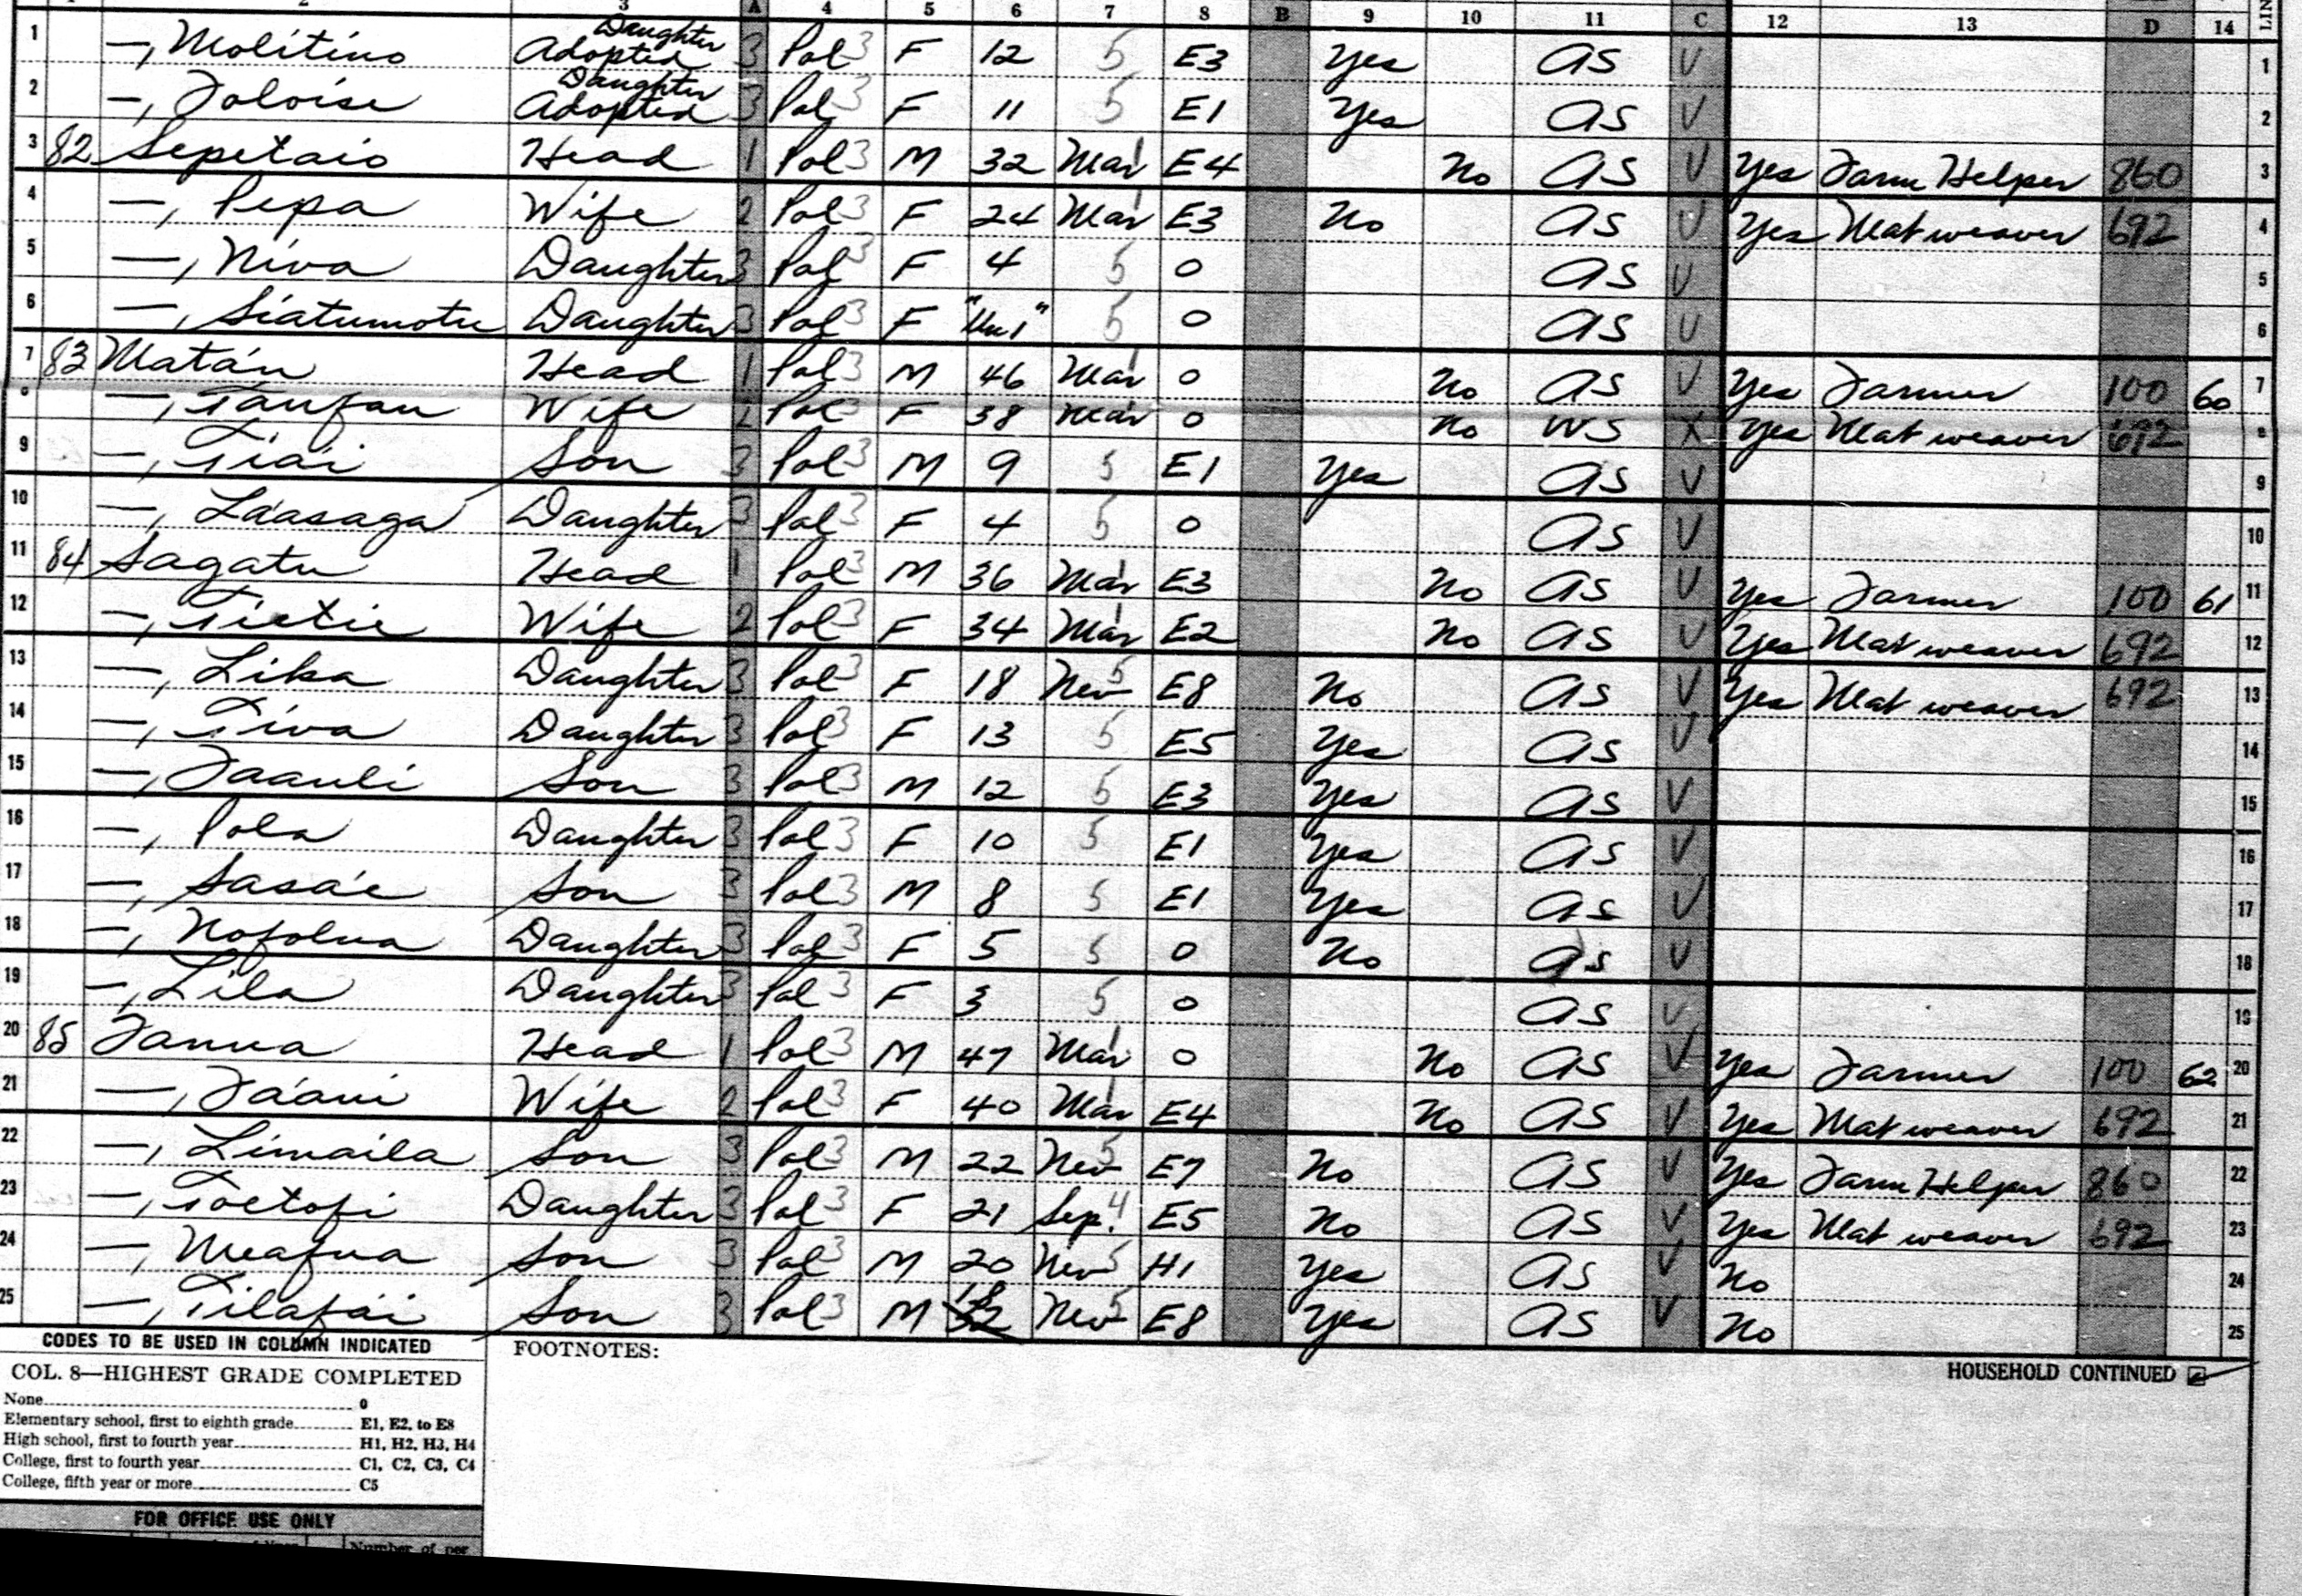 2 3 A 4 5 6 7 8 B 9 10 11 C 12 13 D 14 LIN
1 —, Molitino Adopted Daughter 3 Pol 3 F 12 5 E3 Yes AS V 1
2 —, Foloise Adopted Daughter 3 Pol 3 F 11 5 E1 Yes AS V 2
3 82 Sepetaio Head 1 Pol 3 M 32 Mar 1 E4 No AS V Yes Farm Helper 860 3
4 —, Pepa Wife 2 Pol 3 F 24 Mar 1 E3 No AS V Yes Mat weaver 692 4
5 —, Niva Daughter 3 Pol 3 F 4 5 0 AS V 5
6 —, Siatumotu Daughter 3 Pol 3 F "Un1" 5 0 AS V 6
7 83 Matáu Head 1 Pol 3 M 46 Mar 1 0 No AS V Yes Farmer 100 60 7
8 —, Taufau Wife 2 Pol 3 F 38 Mar 0 No WS X Yes Mat weaver 692 8
9 —, Tiai Son 3 Pol 3 M 9 5 E1 Yes AS V 9
10 —, Láasaga Daughter 3 Pol 3 F 4 5 0 AS V 10
11 84 Sagatu Head 1 Pol 3 M 36 Mar 1 E3 No AS V Yes Farmer 100 61 11
12 —, Tietie Wife 2 Pol 3 F 34 Mar 1 E2 No AS V Yes Mat weaver 692 12
13 —, Lika Daughter 3 Pol 3 F 18 Nev 5 E8 No AS V Yes Mat weaver 692 13
14 —, Tiva Daughter 3 Pol 3 F 13 5 E5 Yes AS V 14
15 —, Faauli Son 3 Pol 3 M 12 5 E3 Yes AS V 15
16 —, Pola Daughter 3 Pol 3 F 10 5 E1 Yes AS V 16
17 —, Sasa'e Son 3 Pol 3 M 8 5 E1 Yes AS V 17
18 —, Nofolua Daughter 3 Pol 3 F 5 5 0 No AS V 18
19 —, Lila Daughter 3 Pol 3 F 3 5 0 AS V 19
20 85 Fanua Head 1 Pol 3 M 47 Mar 1 0 No AS V Yes Farmer 100 62 20
21 —, Fa'ani Wife 2 Pol 3 F 40 Mar 1 E4 No AS V Yes Mat weaver 692 21
22 —, Limaila Son 3 Pol 3 M 22 Nev 5 E7 No AS V Yes Farm Helper 860 22
23 —, Toetofi Daughter 3 Pol 3 F 21 Sep. 4 E5 No AS V Yes Mat weaver 692 23
24 —, Meafua Son 3 Pol 3 M 20 Nev 5 H1 Yes AS V No 24
25 —, Tilafai Son 3 Pol 3 M 18 Nev 5 E8 Yes AS V No 25
CODES TO BE USED IN COLUMN INDICATED
FOOTNOTES:
HOUSEHOLD CONTINUED
COL. 8—HIGHEST GRADE COMPLETED
None 0
Elementary school, first to eighth grade E1, E2, to E8
High school, first to fourth year H1, H2, H3, H4
College, first to fourth year C1, C2, C3, C4
College, fifth year or more C5
FOR OFFICE USE ONLY
Number of per